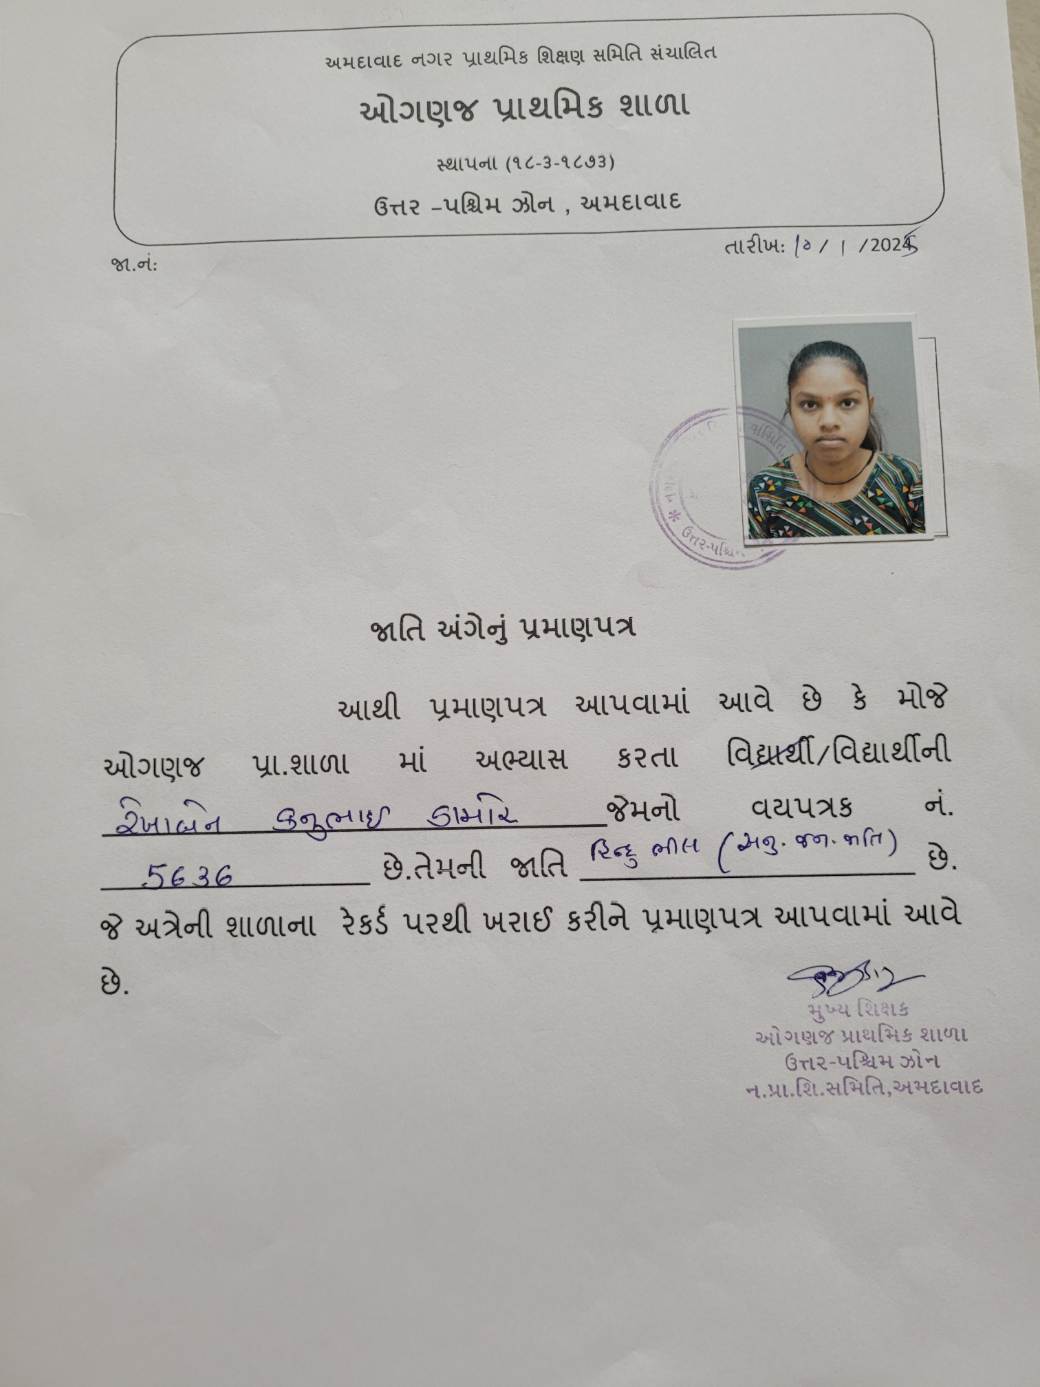 અમદાવાદ નગર પ્રાથમિક શિક્ષણ સમિતિ સંચાલિત
ઓગણજ પ્રાથમિક શાળા
સ્થાપના (૧૮-૩-૧૮૭૩)
ઉત્તર –પશ્ચિમ ઝોન , અમદાવાદ
તારીખ: 10 / 1 / 2025
જા.નં:
ઉત્તર-પશ્ચિમ
જાતિ અંગેનું પ્રમાણપત્ર
આથી પ્રમાણપત્ર આપવામાં આવે છે કે મોજે
ઓગણજ પ્રા.શાળા માં અભ્યાસ કરતા વિદ્યાર્થી/વિદ્યાર્થીની
રેખાબેન કનુભાઈ ડામોર જેમનો વયપત્રક નં.
5636 છે.તેમની જાતિ હિન્દુ ભીલ (અનુ. જન. જાતિ) છે.
જે અત્રેની શાળાના રેકર્ડ પરથી ખરાઈ કરીને પ્રમાણપત્ર આપવામાં આવે
છે.
મુખ્ય શિક્ષક
ઓગણજ પ્રાથમિક શાળા
ઉત્તર-પશ્ચિમ ઝોન
ન.પ્રા.શિ.સમિતિ,અમદાવાદ